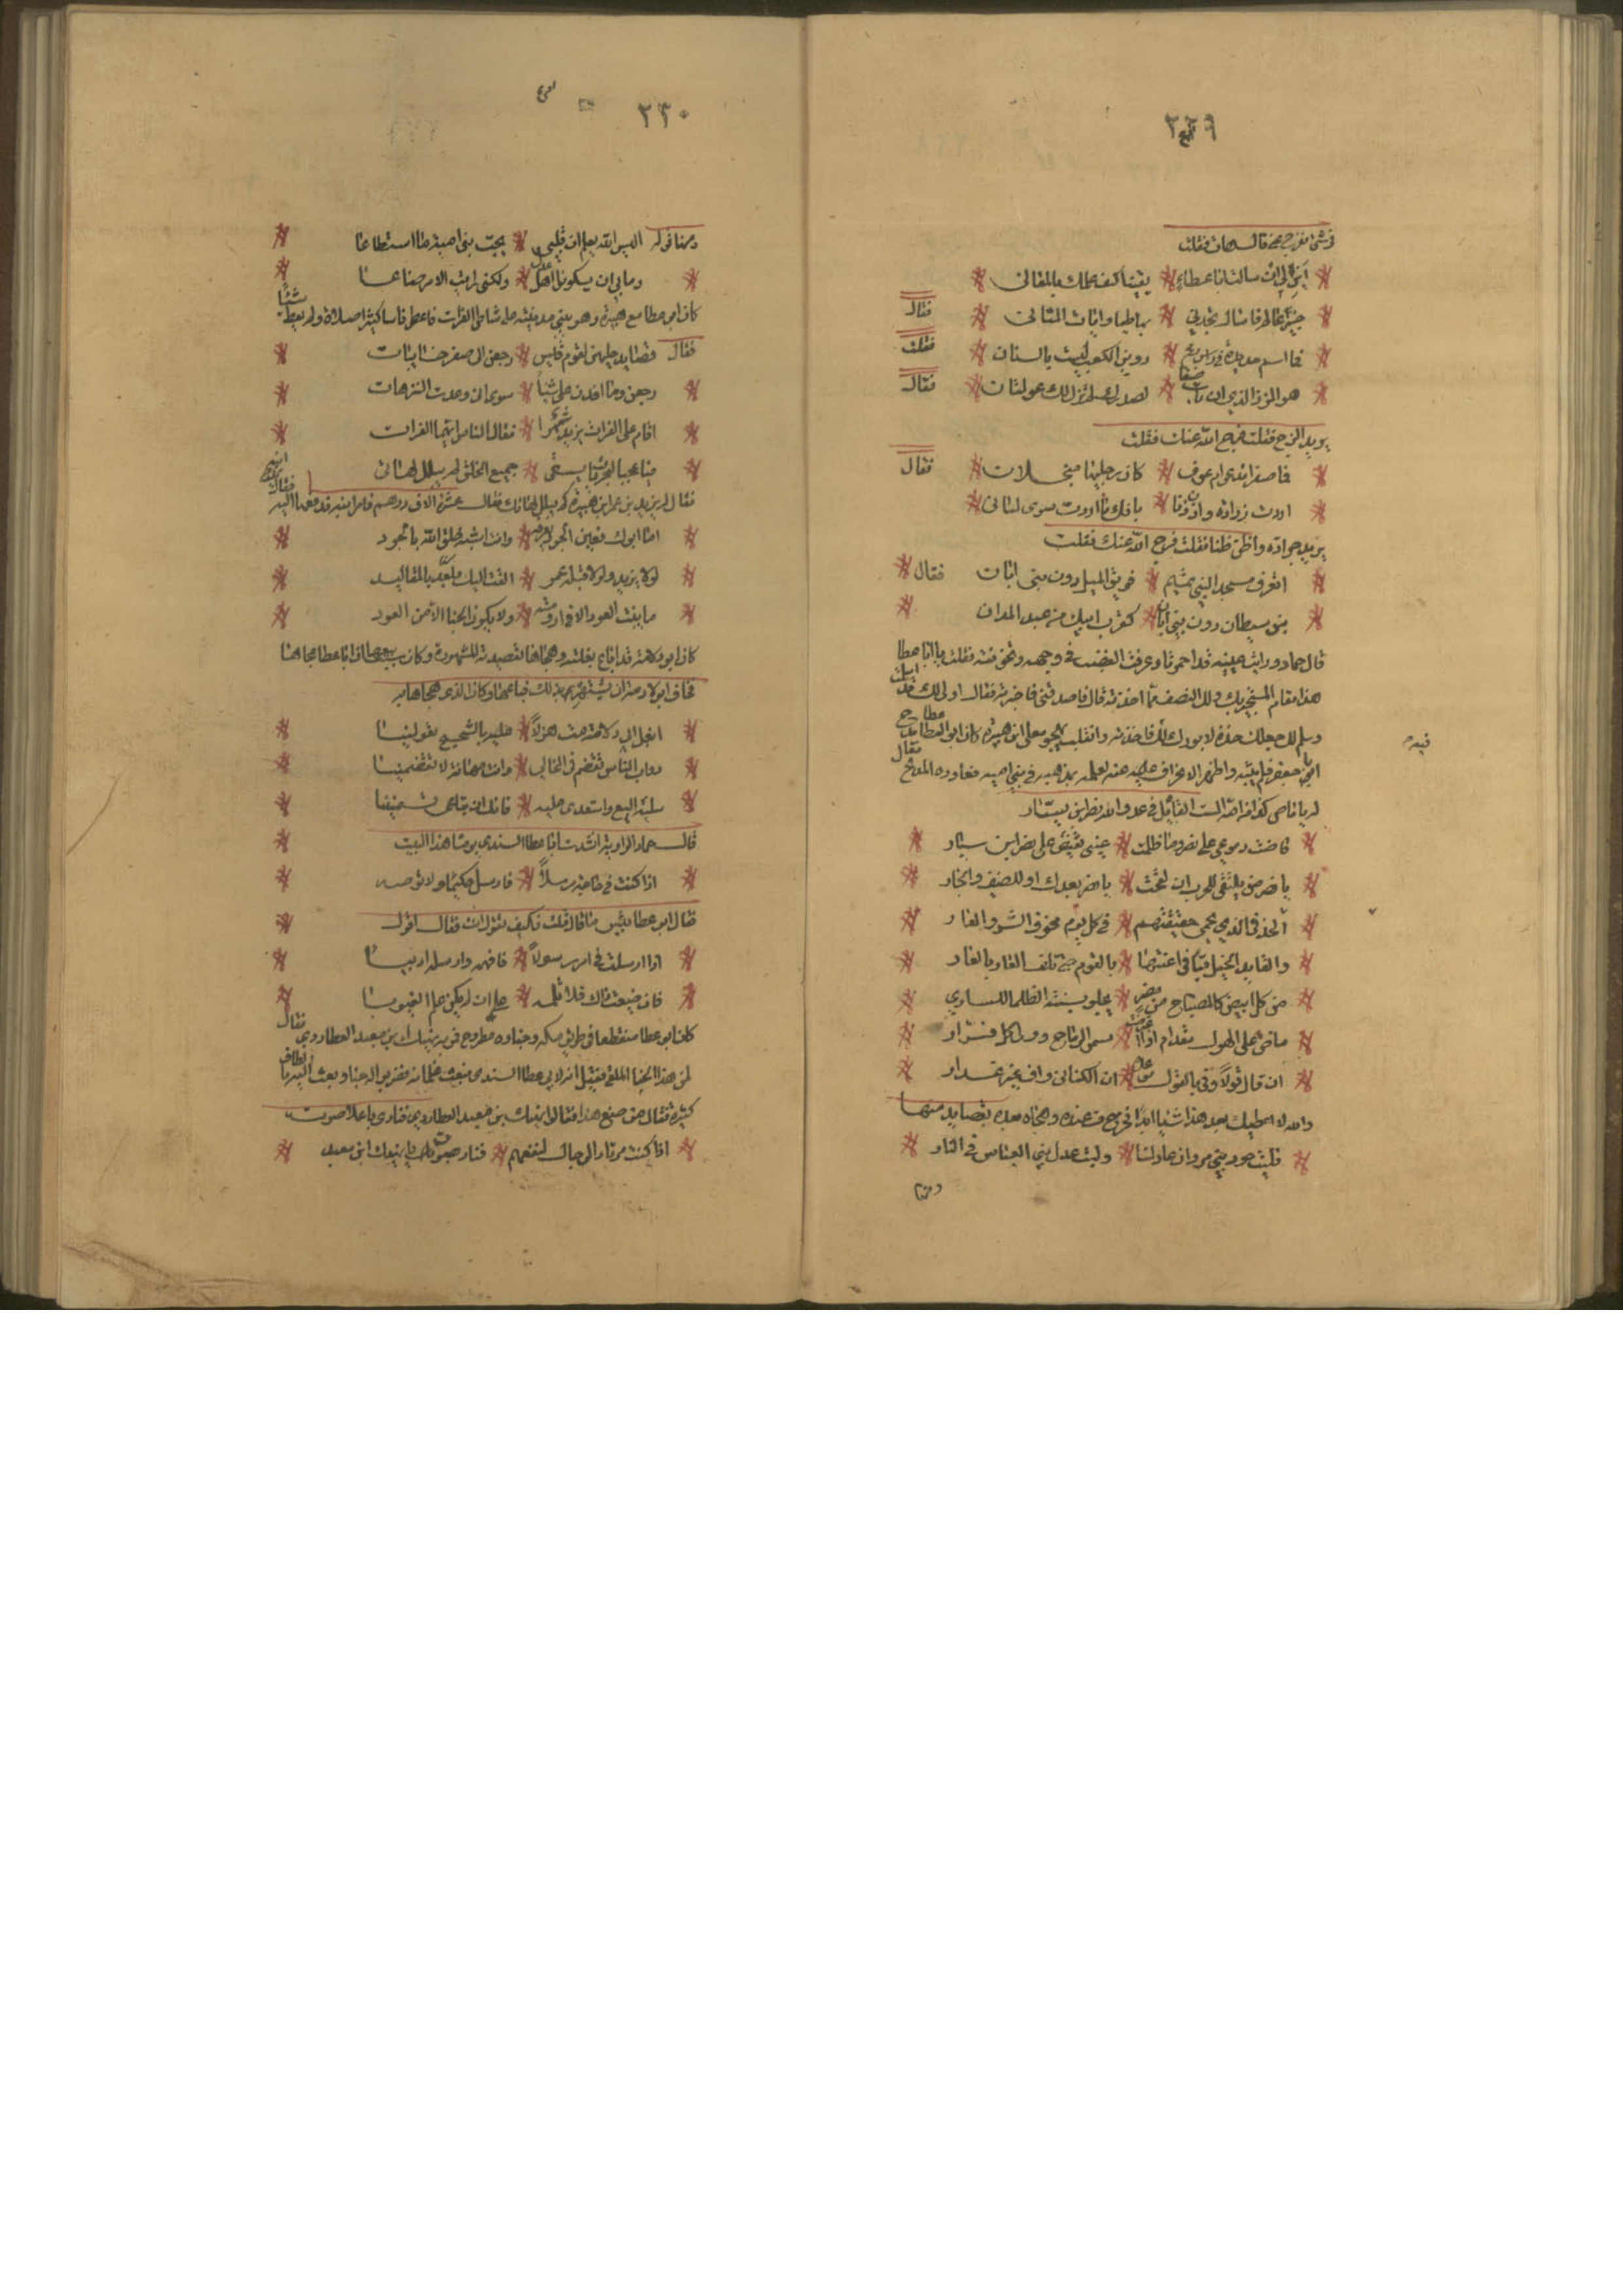 ٢٢٩
تابع
ابن لي ان سالت ابا عطاء * يقينا كيف علمك بالمعاني
خبير عالم فاسال تجدني * بها طبا وايات المثاني * فقال
فما اسم حديدة في راس رمح * دوين الكعب ليست بالسنان * فقلت
هو الزز الذي ان بات ضيفا * لصدرك لم تزل لك عولتان * فقال
يريد الزج فقلت فرج الله عنك فقلت
فما صفراء تدعى ام عوف * كان رجيلتيها منجلان * فقال
اردت زرادة وازن زنا * بانك ما اردت سوى لساني
يريد جرادة واظن ظنا فقلت فرج الله عنك فقلت
اتعرف مسجدا لبني تميم * فويق الميل دون بني ابان فقال
بنو سيطان دون بني ابان * كقرب ابيك من عبد المدان
قال حماد ورايت عينيه قد احمرتا وعرفت الغضب في وجهه وتخوفته فقلت يا ابا عطا
هذا مقام المستجير بك ولك النصف مما اخذته قال فاصدقني فاخبرته فقال اولى لك قد سلمت
وسلم لك جعلك خذه لا بورك لك فاخذته وانقلب يهجو معلى ابن هبيرة كان ابو العطا مدح
ابا جعفر فلم يثبه واظهر الانحراف عليه عنه لعلمه بمذهبه في بني اميه فعاوده المدح فقال
له يا ماص كذا من امه الست القايل في عدو الله نصر ابن سيار
فاضت دموعي على نصر وما ظلمت * عيني تفيض على نصر ابن سيار
يا نصر من يلتقى للحرب ان لقحت * يا نصر بعدك او للضيف والجار
الخندفي الذي يحمي حقيقتهم * في كل يوم مخوف الشر والعار
والقايد الخيل قبا في اعنتها * بالقوم حتى تلف الغار بالغار
من كل ابيض كالمصباح من مضر * يجلو بسنته الظلما للساري
ماض على الهول مقدام اذا اعترضت * سمر الرماح وولى كل فرار
ان قال قولا وفى بالقول موعده * ان الكناني واف غير غدار
والله لا اعطيك بعد هذا شيا ابدا فخرج من عنده وهجاه بعده بقصايد منها
فليت جور بني مروان عاد لنا * وليت عدل بني العباس في النار
ومنها
٢٣٠
ومنها قوله اليس الله يعلم ان قلبي * يحب بني امية ما استطاعا
وما بي ان يكونوا اهل عدل * ولكني رايت الامر ضاعا
كان ابو عطا مع هبيرة وهو يبني مدينته على شاطي الفرات فاعطى ناسا كثيرا صلاة ولم يعطه شيئا
فقال قصايد حكتهن لقوم قيس * رجعن الى صفرا خايبات
رجعن وما افدن علي شيئا * سوى اني وعدت الترهات
اقام على الفرات يزيد شهرا * فقال الناس ايهما الفرات
فيا عجبا لبحر بات يسقي * جميع الخلق لم يبلل لهاتي
فقال له يزيد بن عمر ابن هبيرة كم يبلل لهاتك فقال عشرة الاف درهم فامر ابنه فدفعها اليه فقال
اما ابوك فعين الجود نعرفه * وانت اشبه خلق الله بالجود
لولا يزيد ولولا قبله عمر * القت اليك معد بالمقاليد
ما ينبت العود الا في ارومته * ولا يكون الجنا الا من العود
كان ابو دلامة قد اباع بغلته وهجاها بقصيدته المشهورة وكان ابا عطا هجاها
فخاف ابو دلامة ان يشتهر بذلك فباعها وكان الذي هجاها به
ابغل ابي دلامة مت هزلا * عليه بالشحيح تعولينا
دواب الناس تقضم في المخالي * وانت مهانة لا تقضمينا
سليه البيع واستعدي عليه * فانك ان تباعي تسمنينا
قال حماد الراوية انشدت ابا عطا السندي يوما هذا البيت
اذا كنت في حاجة مرسلا * فارسل حكيما ولا توصه
فقال ابو عطا بيس ما قال فقلت فكيف تقول انت فقال اقول
اذا ارسلت في امر رسولا * فافهمه وارسله اديبا
فان ضيعت ذاك فلا تلمه * على ان لم يكن علم الغيوبا
كان ابو عطا منقطعا في طريق مكه وخباوه مطروح فمر به نهيك بن معبد العطاردي فقال
لمن هذا الخبا الملقى فقيل انه لابي عطا السندي فبعث غلمانه فضربوا له خبا وبعث اليه بالطاف
كثيرة فقال من صنع هذا فقالوا نهيك بن معبد العطاردي فنادى باعلا صوته
اذا كنت مرتاد الرجال لنفعهم * فناد بصوت يا نهيك ابن معبد